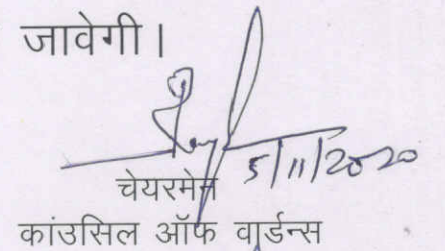 जावेगी।
5/11/2020
चेयरमेन
कांउसिल ऑफ वार्डन्स